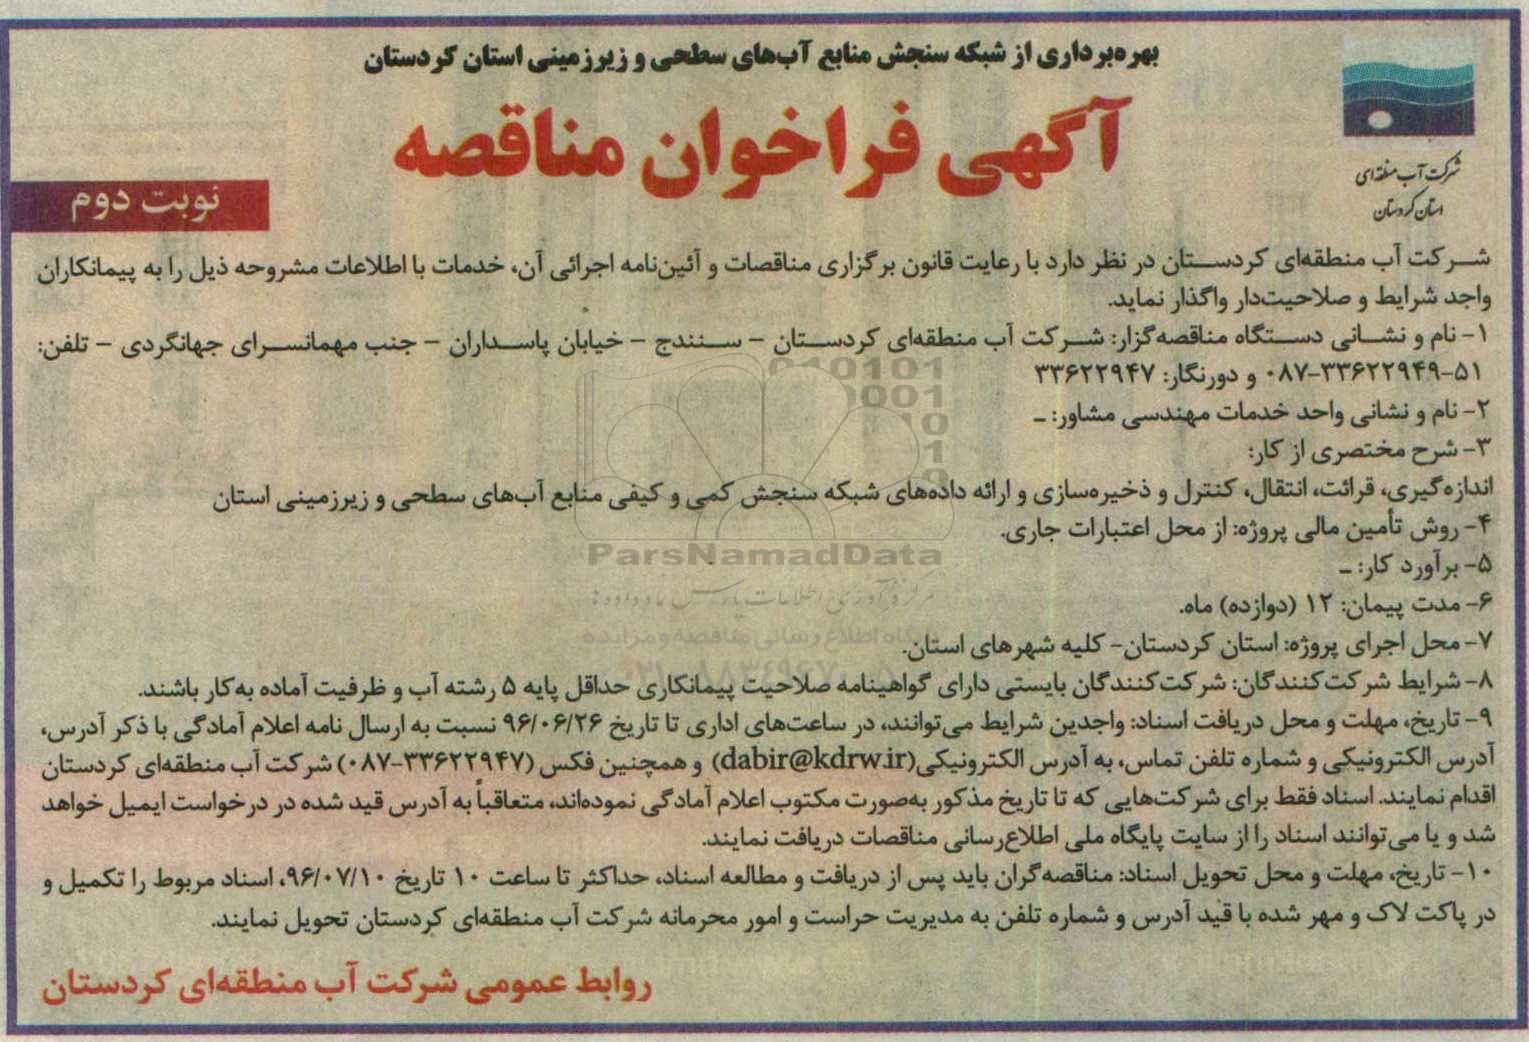 بهره‌برداری از شبکه سنجش منابع آب‌های سطحی و زیرزمینی استان کردستان
آگهی فراخوان مناقصه
شرکت آب منطقه‌ای
استان کردستان
نوبت دوم
شرکت آب منطقه‌ای کردستان در نظر دارد با رعایت قانون برگزاری مناقصات و آئین‌نامه اجرائی آن، خدمات با اطلاعات مشروحه ذیل را به پیمانکاران
واجد شرایط و صلاحیت‌دار واگذار نماید.
۱- نام و نشانی دستگاه مناقصه‌گزار: شرکت آب منطقه‌ای کردستان – سنندج – خیابان پاسداران – جنب مهمانسرای جهانگردی – تلفن:
۰۸۷-۳۳۶۲۲۹۴۹-۵۱ و دورنگار: ۳۳۶۲۲۹۴۷
۲- نام و نشانی واحد خدمات مهندسی مشاور: ـ
۳- شرح مختصری از کار:
اندازه‌گیری، قرائت، انتقال، کنترل و ذخیره‌سازی و ارائه داده‌های شبکه سنجش کمی و کیفی منابع آب‌های سطحی و زیرزمینی استان
۴- روش تأمین مالی پروژه: از محل اعتبارات جاری.
۵- برآورد کار: ـ
۶- مدت پیمان: ۱۲ (دوازده) ماه.
۷- محل اجرای پروژه: استان کردستان- کلیه شهرهای استان.
۸- شرایط شرکت‌کنندگان: شرکت‌کنندگان بایستی دارای گواهینامه صلاحیت پیمانکاری حداقل پایه ۵ رشته آب و ظرفیت آماده به‌کار باشند.
۹- تاریخ، مهلت و محل دریافت اسناد: واجدین شرایط می‌توانند، در ساعت‌های اداری تا تاریخ ۹۶/۰۶/۲۶ نسبت به ارسال نامه اعلام آمادگی با ذکر آدرس،
آدرس الکترونیکی و شماره تلفن تماس، به آدرس الکترونیکی(dabir@kdrw.ir) و همچنین فکس (۳۳۶۲۲۹۴۷-۰۸۷) شرکت آب منطقه‌ای کردستان
اقدام نمایند. اسناد فقط برای شرکت‌هایی که تا تاریخ مذکور به‌صورت مکتوب اعلام آمادگی نموده‌اند، متعاقباً به آدرس قید شده در درخواست ایمیل خواهد
شد و یا می‌توانند اسناد را از سایت پایگاه ملی اطلاع‌رسانی مناقصات دریافت نمایند.
۱۰- تاریخ، مهلت و محل تحویل اسناد: مناقصه‌گران باید پس از دریافت و مطالعه اسناد، حداکثر تا ساعت ۱۰ تاریخ ۹۶/۰۷/۱۰، اسناد مربوط را تکمیل و
در پاکت لاک و مهر شده با قید آدرس و شماره تلفن به مدیریت حراست و امور محرمانه شرکت آب منطقه‌ای کردستان تحویل نمایند.
روابط عمومی شرکت آب منطقه‌ای کردستان
ParsNamadData
مرکز فرآوری اطلاعات پارس نماد داده‌ها
پایگاه اطلاع رسانی مناقصه و مزایده